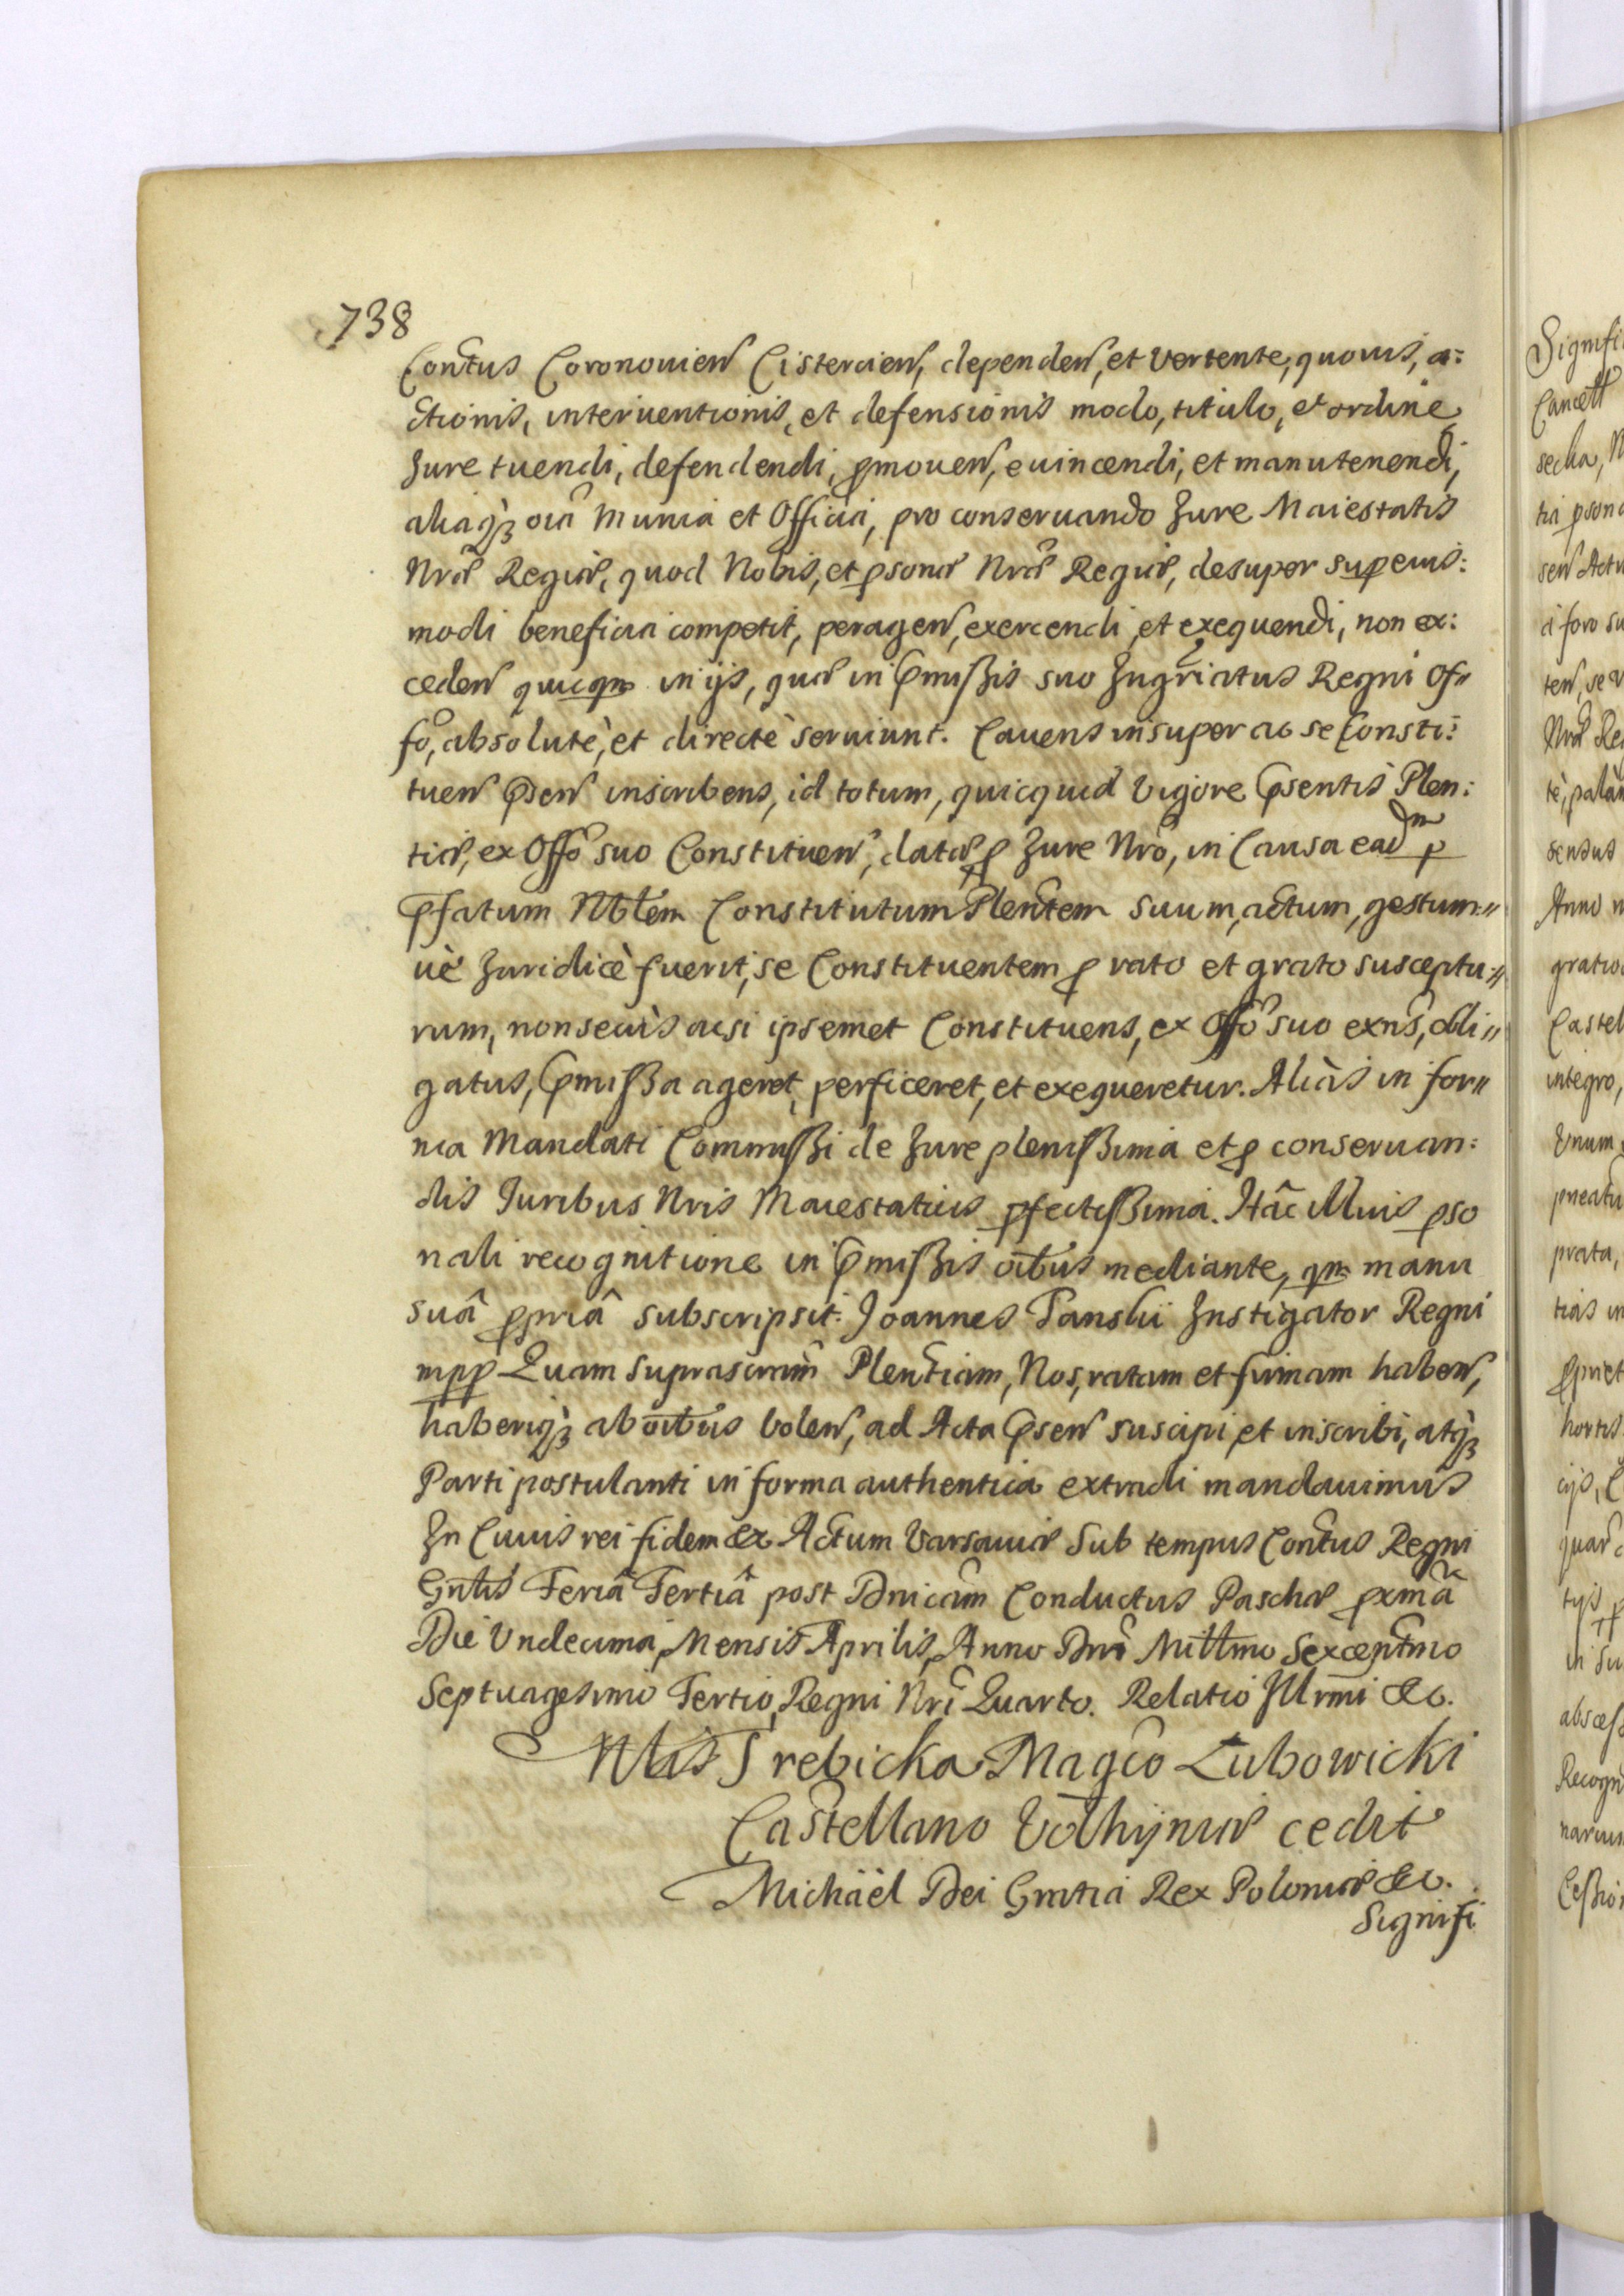 738
Conv̄tus Coronovien̄ Cistercien̄, dependen̄, et vertente, quovis, a:
ctionis, interventionis, et defensionis modo, titulo, et ordine
Jure tuendi, defendendi, ꝓmoven̄, evincendi, et manutenendi,
aliaqꝫ oīa Munia et Officia, pro conservando Jure Maiestatis
Nræ̃ Regiæ, quod Nobis, et ꝑsonæ Nræ̃ Regiæ, desuper supeius:
modi beneficia competit, peragen̄, exercendi, et exequendi, non ex:
ceden̄ quicqm̄ in ijs, quæ in p̄mißis suo Jnḡriatus Regni Of„
fō, absolutè, et directè serviunt. Cavens insuper ac se Consti:
tuen̄ p̄sen̄ inscribens, id totum, quicquid vigore p̄sentis Plen:
tiæ, ex Offō suo Constituen̄, datæ ꝓ Jure Nrō, in Causa eadm̄ ꝑ
p̄fatum Nbl̃em Constitutum Plen̄tem suum, actum, gestum„
vè Juridicè fuerit, se Constituentem ꝓ rato et grato susceptu„
rum, non secùs acsi ipsemet Constituens, ex Offō suo exn̄s, obli„
gatus, p̄mißa ageret, perficeret, et exequeretur. Aliàs in for„
ma Mandati Commißi de Jure plenißima et ꝓ conservan:
dis Juribus Nris Maiestaticis ꝑfectißima. Hâc illius ꝑso
nali recognitione in p̄mißis oībus mediante, qm̄ manu
suâ ꝓpriâ subscripsit. Joannes Tanskii Jnstigator Regni
mpp Quam suprascrāmē Plen̄tiam, Nos, ratam et firmam haben̄,
haberiqꝫ ab oībus volen̄, ad Acta p̄sen̄ suscipi, et inscribi, atqꝫ
Parti postulanti in forma authentica extradi mandavimus
Jn Cuius rei fidem &c. Actum Varsaviæ Sub tempus Conv̄tus Regni
Gn̄lis Feriâ Tertiâ post Dn̄icam̄ Conductus Paschæ ꝓxmâ
Die Undecima, Mensis Aprilis, Anno Dnī Mill̄mo Sexcen̄tmo
Septuagesimo Tertio, Regni Nrī Quarto. Relatio Jllr̄mi &c.
Nblis Trebicka Magcō Lubowicki
Castellano Volhyniæ cedit
Michaël Dei Gratia Rex Poloniæ &c.
Signifi